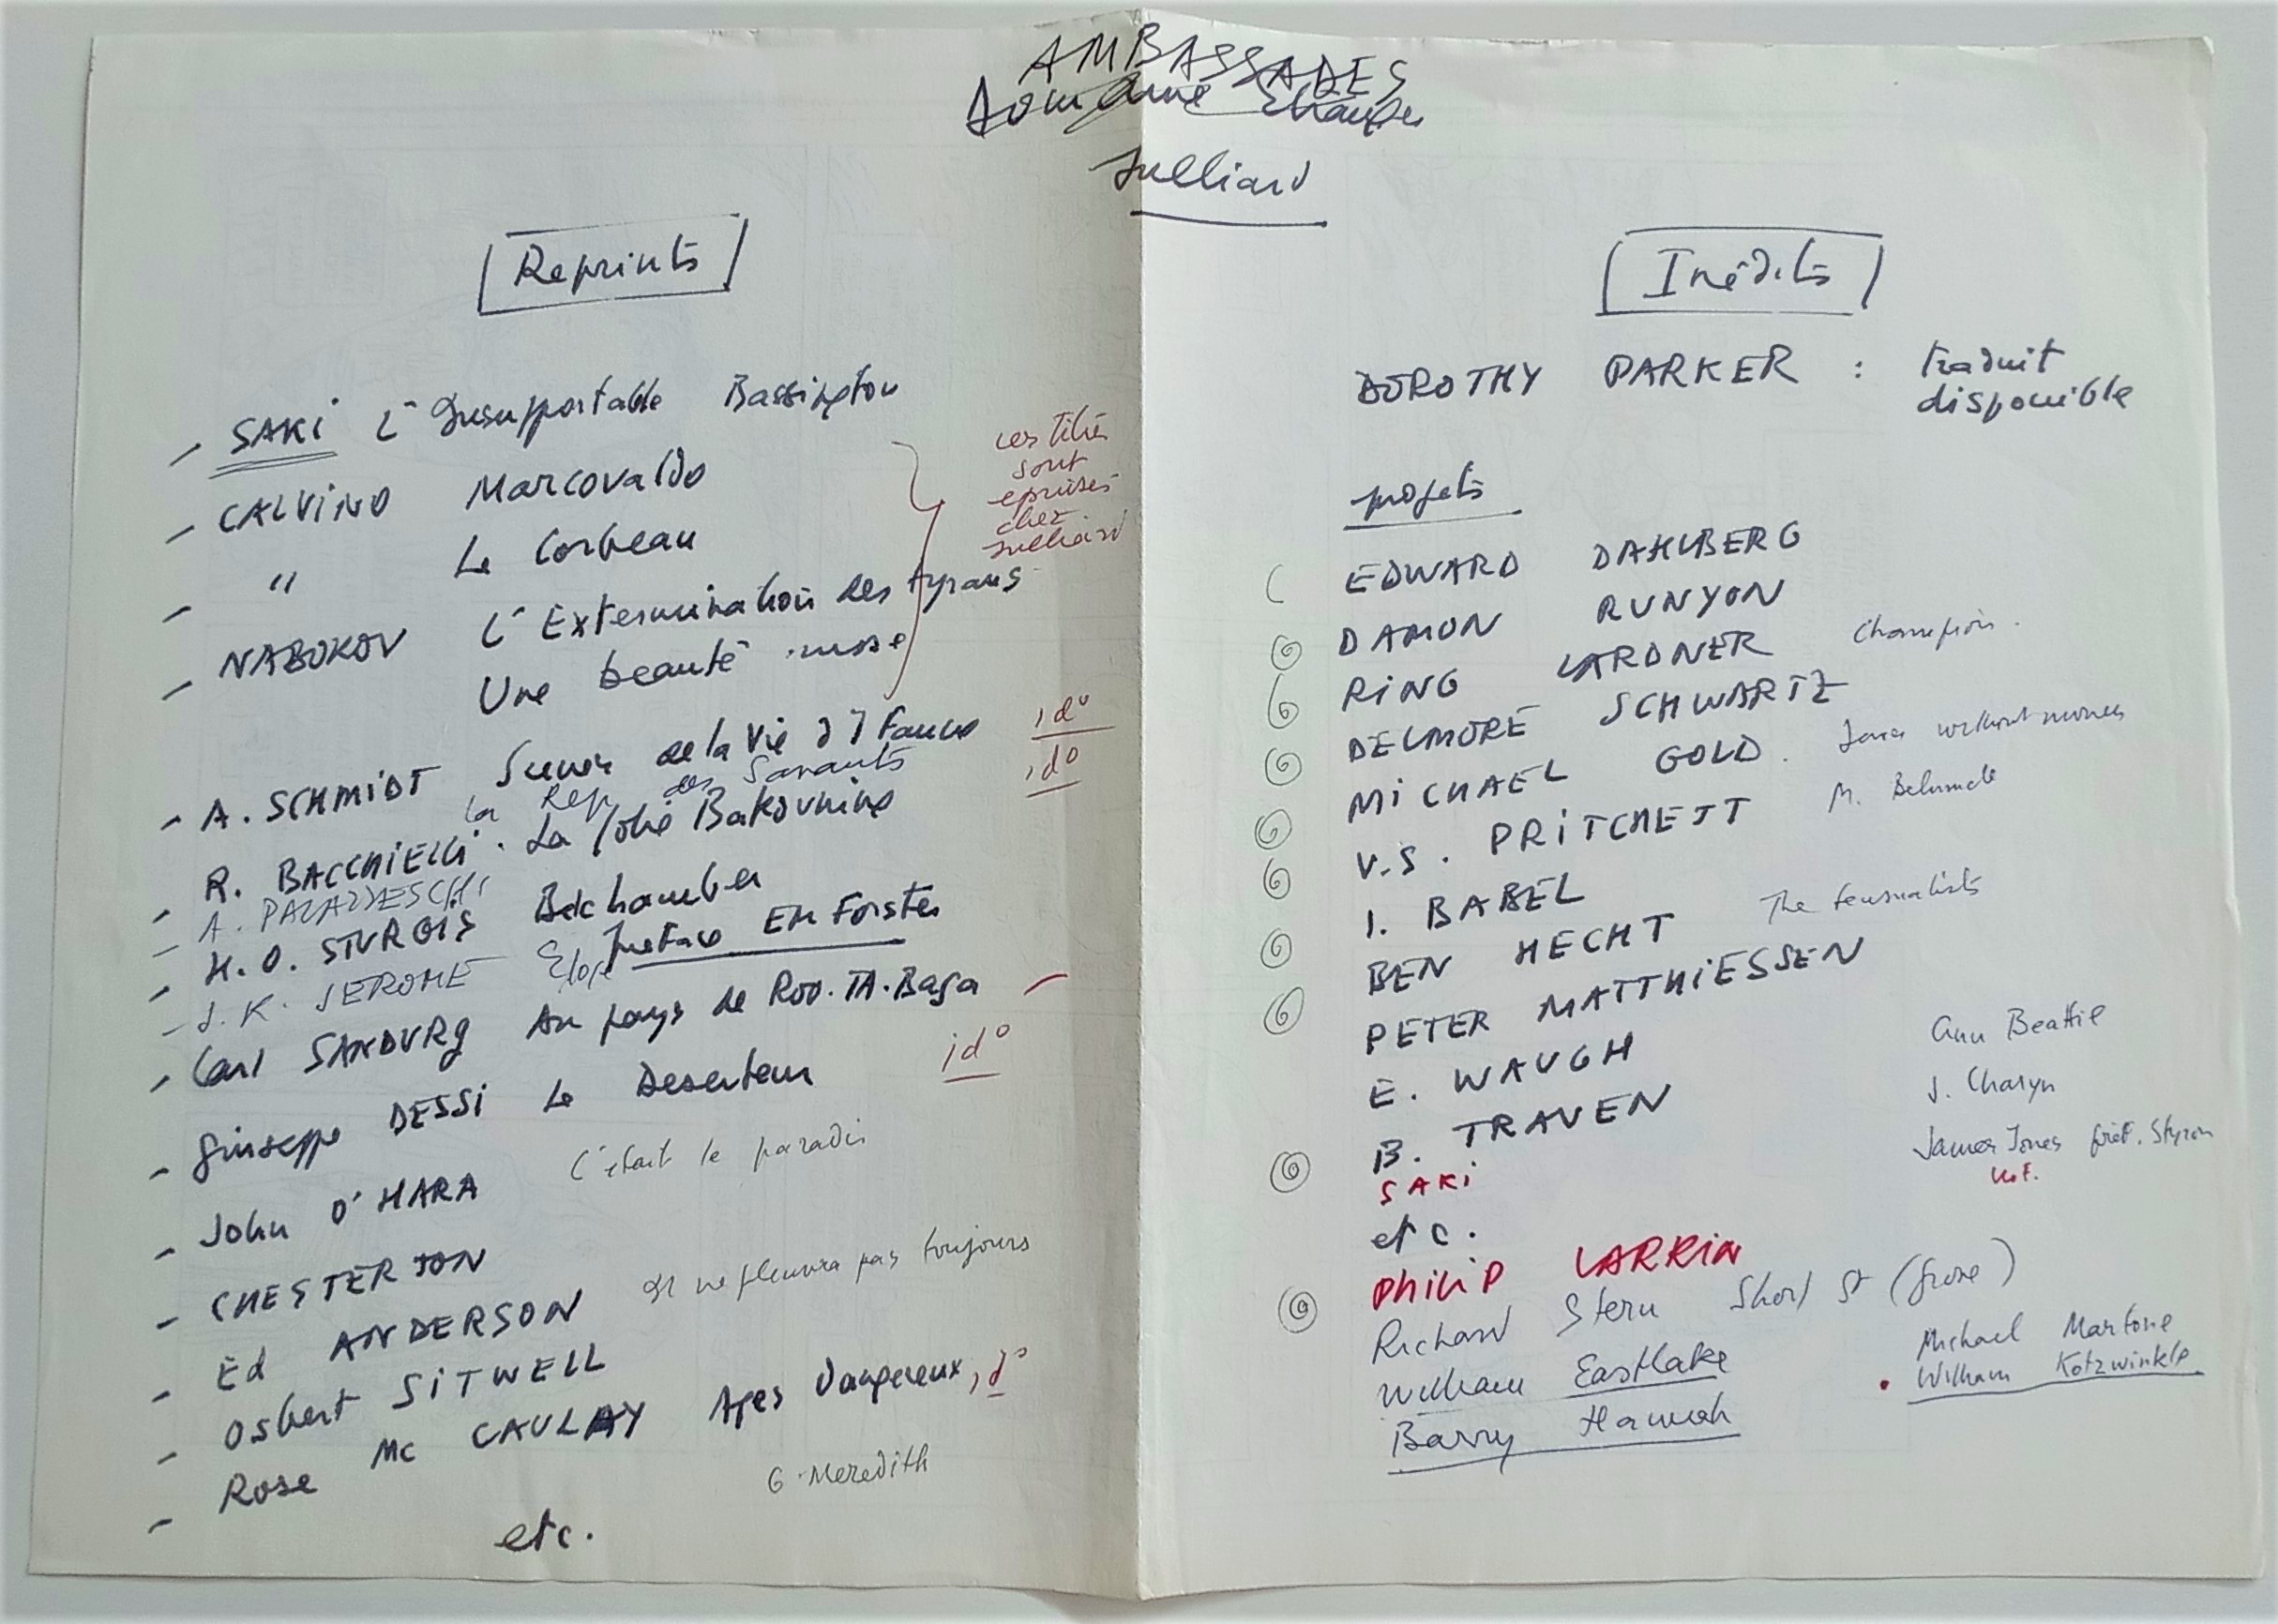 AMBASSADES
Domaine Etranger
Julliard
Reprints
- SAKI L'Insupportable Bassington
- CALVINO Marcovaldo
- " Le Corbeau
- NABOKOV L'Extermination des tyrans
Une beauté russe
ces titres
sont
épuisés
chez
Julliard
- A. SCHMIDT Scènes de la Vie d'1 Faune , d°
La Rép des Savants , d°
- R. BACCHIELLI. La folie Bakounine
- A. PALAZZESCHI
- H. O. STURGIS Belchamber
Préface EM Forster
- J. K. JEROME
- Carl SANDBURG Au pays de Roo.TA.Baga
- Giuseppe DESSI Le Deserteur id°
- John O'HARA C'était le paradis
- CHESTERTON
- Ed ANDERSON Il ne pleuvra pas toujours
- Osbert SITWELL
- Rose Mc CAULAY Ages dangereux, d°
G. Meredith
etc.
Inédits
DOROTHY PARKER : traduit
disponible
projets
EDWARD DAHLBERG
DAMON RUNYON
RING LARDNER Champion.
DELMORE SCHWARTZ
MICHAEL GOLD. Jews without money
V.S. PRITCHETT M. Beluncle
I. BABEL
BEN HECHT The
PETER MATTHIESSEN
E. WAUGH
B. TRAVEN
SAKI
etc.
Ann Beattie
J. Charyn
James Jones préf. Styron
PHILIP LARKIN
Richard Stern Short St (Grove)
William Eastlake
Barry Hannah
Michael Martone
William Kotzwinkle